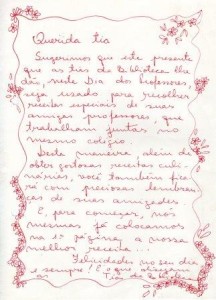 Querida tia
Sugerimos que este presente
que as tias da Biblioteca lhe
dão, neste Dia dos Professores,
seja usado para recolher
receitas especiais de suas
amigas professoras, que
trabalham juntas no
mesmo colégio.
Desta maneira, além de
obter gostosas receitas culi-
nárias, você também fica-
rá com preciosas lembran-
ças de suas amizades.
E, para começar, nós
mesmas já colocamos
na 1ª página, a nossa
melhor receita...
Felicidades no seu dia
e sempre! É o que desejam as
Tias da Biblio